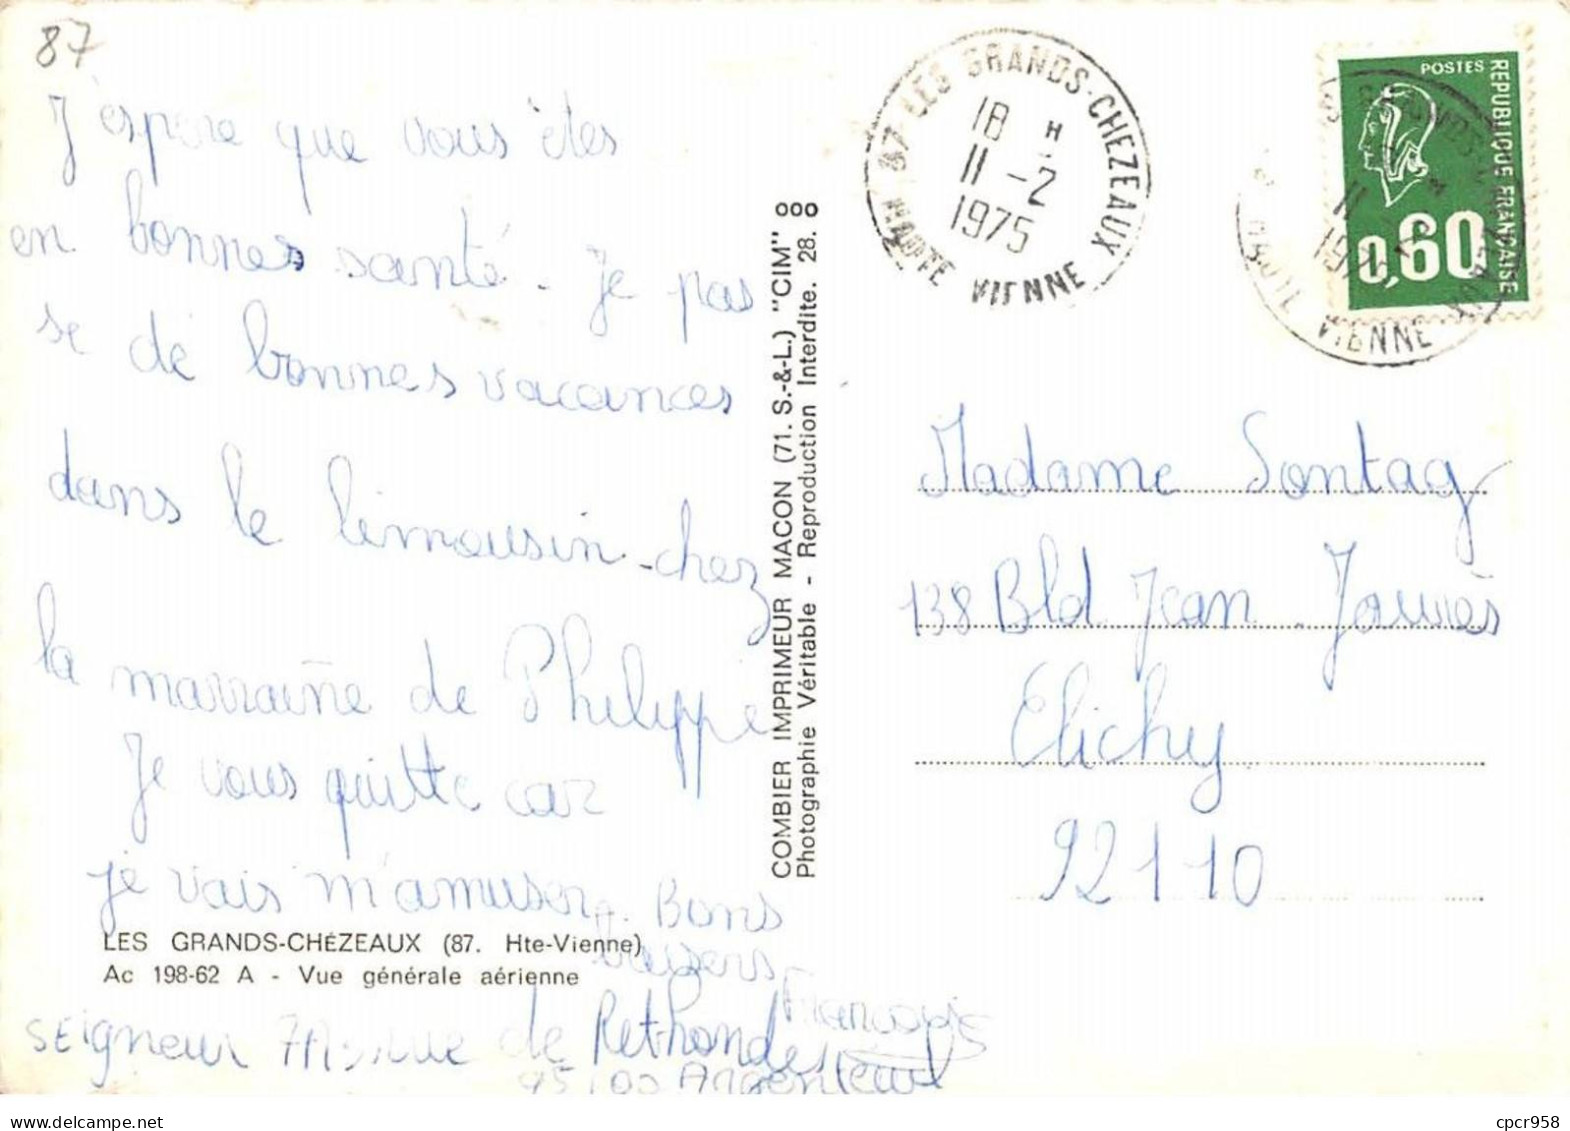 87
J'espere que vous êtes
en bonnes santé. Je pas
se de bonnes vacances
dans le limousin chez
la marraine de Philippe
Je vous quitte car
je vais m'amuser. Bons
baisers
François
LES GRANDS-CHÉZEAUX (87. Hte-Vienne)
Ac 198-62 A - Vue générale aérienne
SEigneur 7 Avenue de Rethondes
95100 Argenteuil
COMBIER IMPRIMEUR MACON (71. S.-&-L.) "CIM"
Photographie Véritable - Reproduction Interdite. 28.
87 LES GRANDS-CHEZEAUX
18 H
11 -2
1975
HAUTE VIENNE
POSTES
REPUBLIQUE FRANÇAISE
0,60
VIENNE
Madame Sontag
138 Bld Jean Jaurès
Clichy
92110
cpcr958